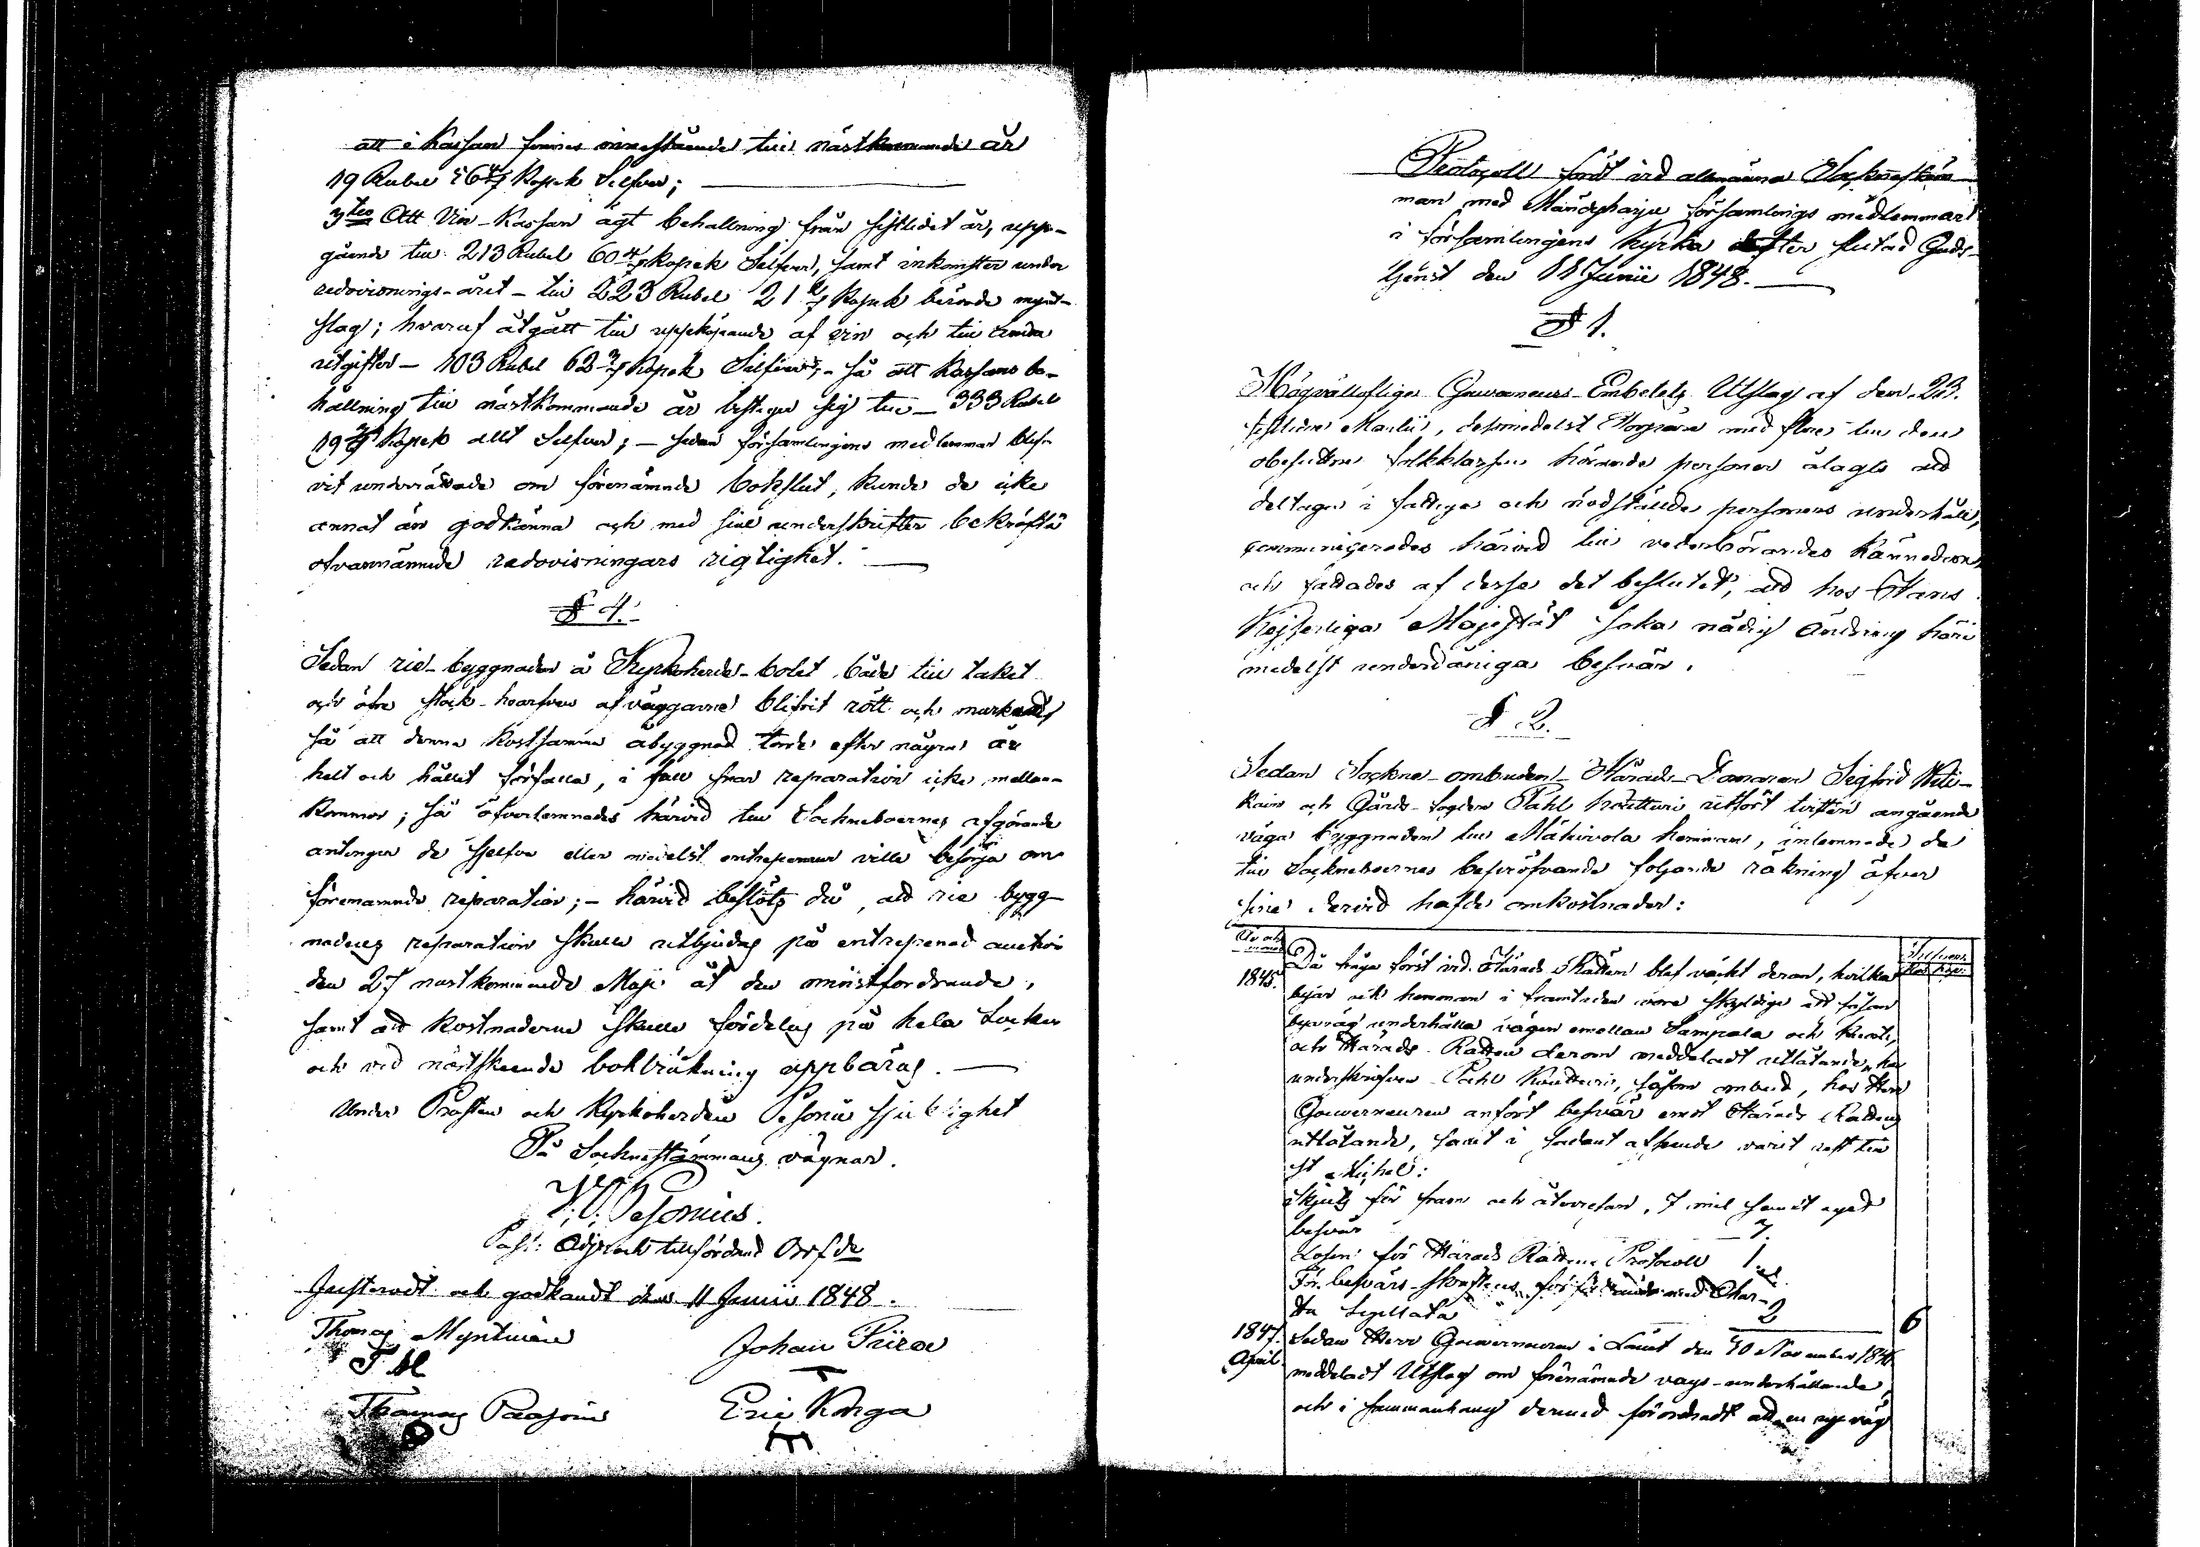 att i Kassan finnes innestående till nästkommande år
19 Rubel 56 4/7 Kopek Silfver;
3tio Att Vin-Kassan ägt behållning från sistledet år, upp-
gående till 213 Rubel 60 4/7 Kopek Silfver, samt inkomster under
redovisnings-året - till 223 Rubel 21 2/7 Kopek berörde mynt-
slag; hvaraf åtgått till uppköpande af vin och till andra
utgifter - 103 Rubel 62 3/7 Kopek Silfver; - så att Kassans be-
hållning till nästkommande år bestiger sig till - 333 Rubel
19 3/7 Kopek allt Silfver; - sedan församlingens medlemmar blif-
vit underrättade om förenämnde bokslut, kunde de icke
annat än godkänna och med sine underskrifter bekräfta
ofvannämnde redovisningars rigtighet.
§ 4.
Sedan rie-byggnaden å Kyrkoherde-bolet både till taket
och öfre stock-hvarfven af väggarne blifvit rött och murknadt
så att denna kostsamma åbyggnad torde efter några år
helt och hållet förfalla, i fall snar reparation icke mellan-
kommer; så öfverlemnades härvid till Sockneboernes afgörande
antingen de sjelfva eller medelst entrepreneur ville besörja om
förenämnde reparation; - härvid beslöts då, att rie bygg-
nadens reparation skulle utbjudas på entreprenad auction
den 27 nästkommande Maji åt den minstfordrande,
samt att kostnaderne skulle fördelas på hela Socken
och vid nästskeende bokträkning uppbäras.
Under Prosten och Kyrkoherden Pesonii sjuklighet
På Sockne stämmans vägnar.
Pesonius.
Past: Adjunct tillförordnad Ordf:de
Justeradt och godkändt den 11 Junii 1848.
Thomas Myntinen Johan Piira
T M
Thomas Paasoin Eric Korga
Protocoll fördt vid allmänna Sockneståm-
man med Mändyharju församlings medlemmar
i församlingens Kyrka efter slutad Guds-
tjenst den 11 Junii 1848.
§ 1.
Högvälloflige Gouverneurs-Embetets Utslag af den 23.
sistledne Martii, desmedelst med flere till den
obesuttne folkklassen hörande personer ålagts att
deltaga i fattiga och nödställde personers underhåll,
communicerades härvid till vederbörandes kännedom,
och fattades af desse det beslutet, att hos Hans
Kejserliga Majestät söka nådig ändring häri
medelst underdåniga besvär.
§ 2.
Sedan Sockne-ombuden - Härads-Domaren Sigfrid
och Gårds-fogden Påhl utfört tvisten angående
väga byggnaden till hemman, inlemnade de
till Sockneboernes bepröfvande följande räkning öfver
sine dervid hafde omkostnader:
År och
månad Silfver.
Rub. Kop.
1845. Då fråga först vid Härads Rätten blef väckt derom, hvilka
byar och hemman i framtiden vore skyldige att såsom
byaväg underhålla vägen emellan Lampala och
och Härads Rätten derom meddeladt utlåtande, har
underskrifven Påhl såsom ombud, hos Herr
Gouverneuren anfört besvär emot Härads Rättens
utlåtande, samt i sådant afseende varit rest till
St Michel:
Skjuts för fram och återresan, 7 mil samt eget
besvär 7
Lösen för Härads Rättens Protocoll 1.
För besvärs-skriftens med Char-
ta Sigillata 2 6
1847. Sedan Herr Gouverneuren i Länet den 10 November 1846
April meddeladt Utslag om förenämnde vägs-underhållande,
och i sammanhang dermed förordnadt att en ny väg